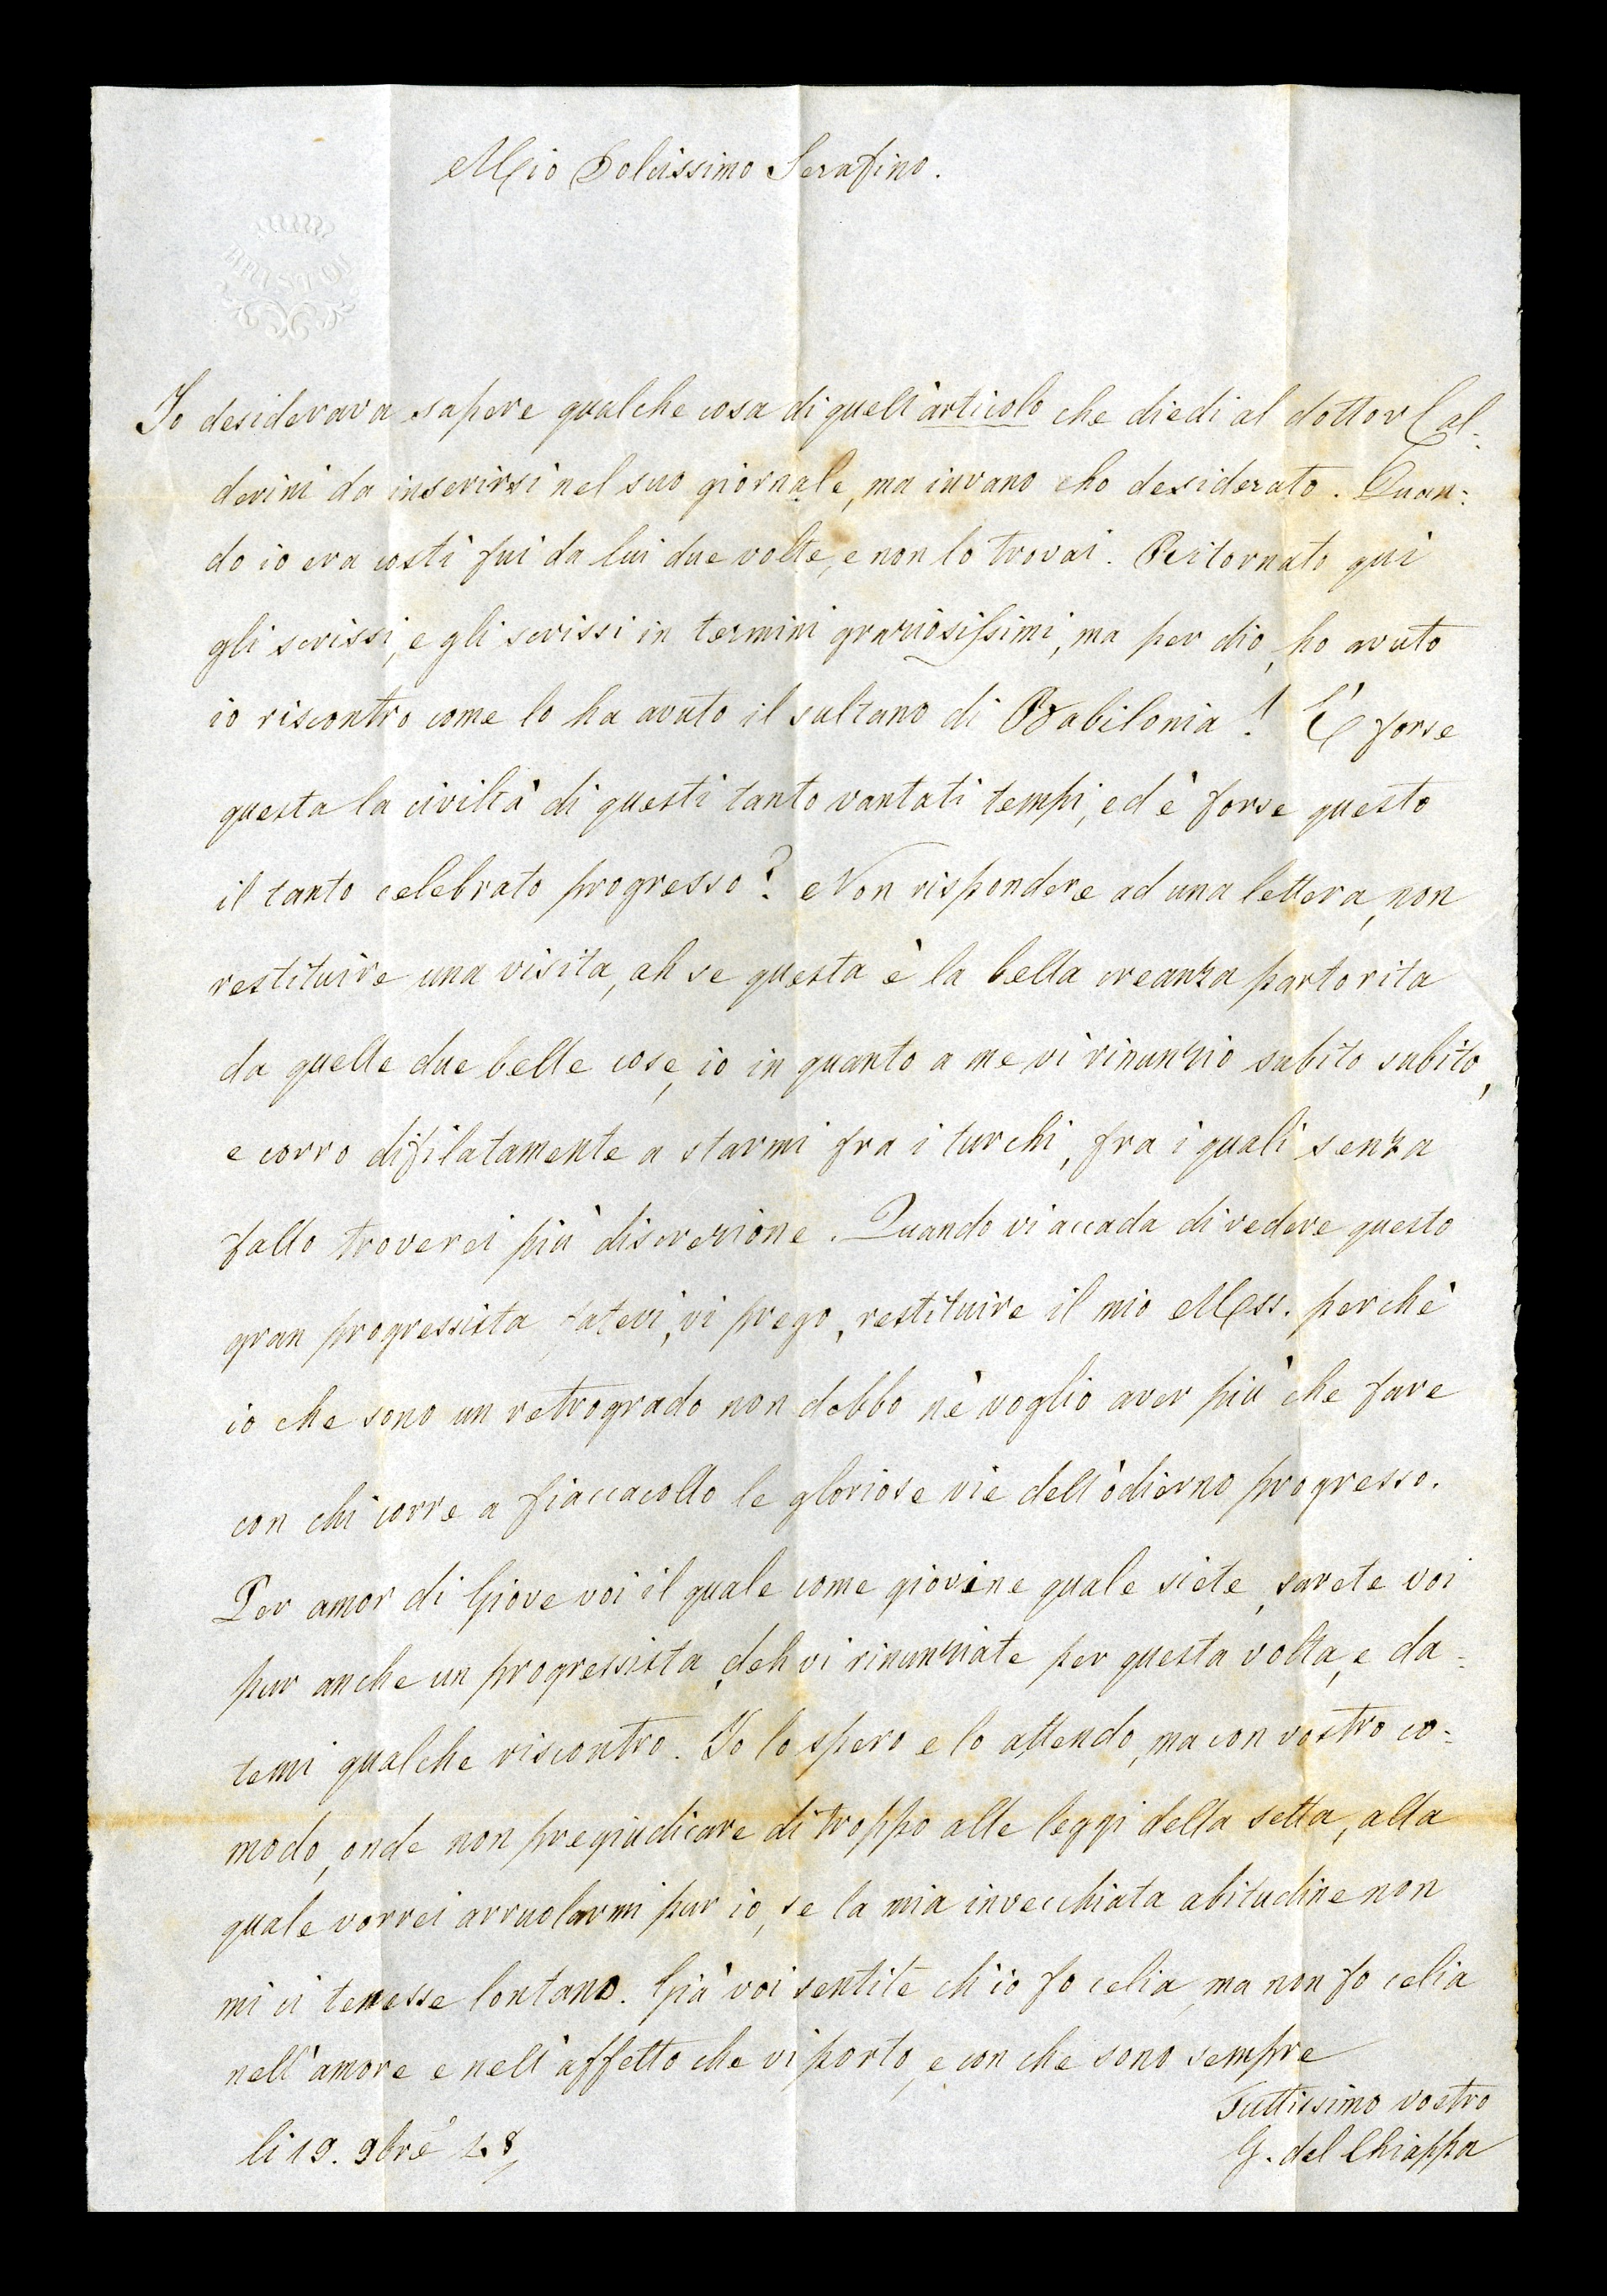 Mio Dolcissimo Serafino.
BRISTOL
Io desiderava sapere qualche cosa di quell'articolo che diedi al dottor Cal-
derini da inserirsi nel suo giornale, ma invano ho desiderato. Quan-
do io era costì fui da lui due volte, e non lo trovai. Ritornato quì
gli scrissi, e gli scrissi in termini graziosissimi, ma per dio, ho avuto
io riscontro come lo ha avuto il sultano di Babilonia! È forse
questa la civiltà di questi tanto vantati tempi, ed è forse questo
il tanto celebrato progresso? Non rispondere ad una lettera, non
restituire una visita, ah se questa è la bella creanza partorita
da quelle due belle cose, io in quanto a me vi rinunzio subito subito,
e corro difilatamente a starmi fra i turchi, fra i quali senza
fallo troverei più discrezione. Quando vi accada di vedere questo
gran progressista, fatevi, vi prego, restituire il mio Mss. perchè
io che sono un retrogrado non debbo nè voglio aver più che fare
con chi corre a fiaccacollo le gloriose vie dell'odierno progresso.
Per amor di Giove voi il quale come giovine quale siete, sarete voi
pur anche un progressista, deh vi rinunziate per questa volta, e da-
temi qualche riscontro. Io lo spero e lo attendo, ma con vostro co-
modo, onde non pregiudicare di troppo alle leggi della setta, alla
quale vorrei arruolarmi pur io, se la mia invecchiata abitudine non
mi ci tenesse lontano. Già voi sentite ch'io fo celia, ma non fo celia
nell'amore e nell'affetto che vi porto, e con che sono sempre
Tuttissimo vostro
li 19. 9bre 48,
G. del Chiappa